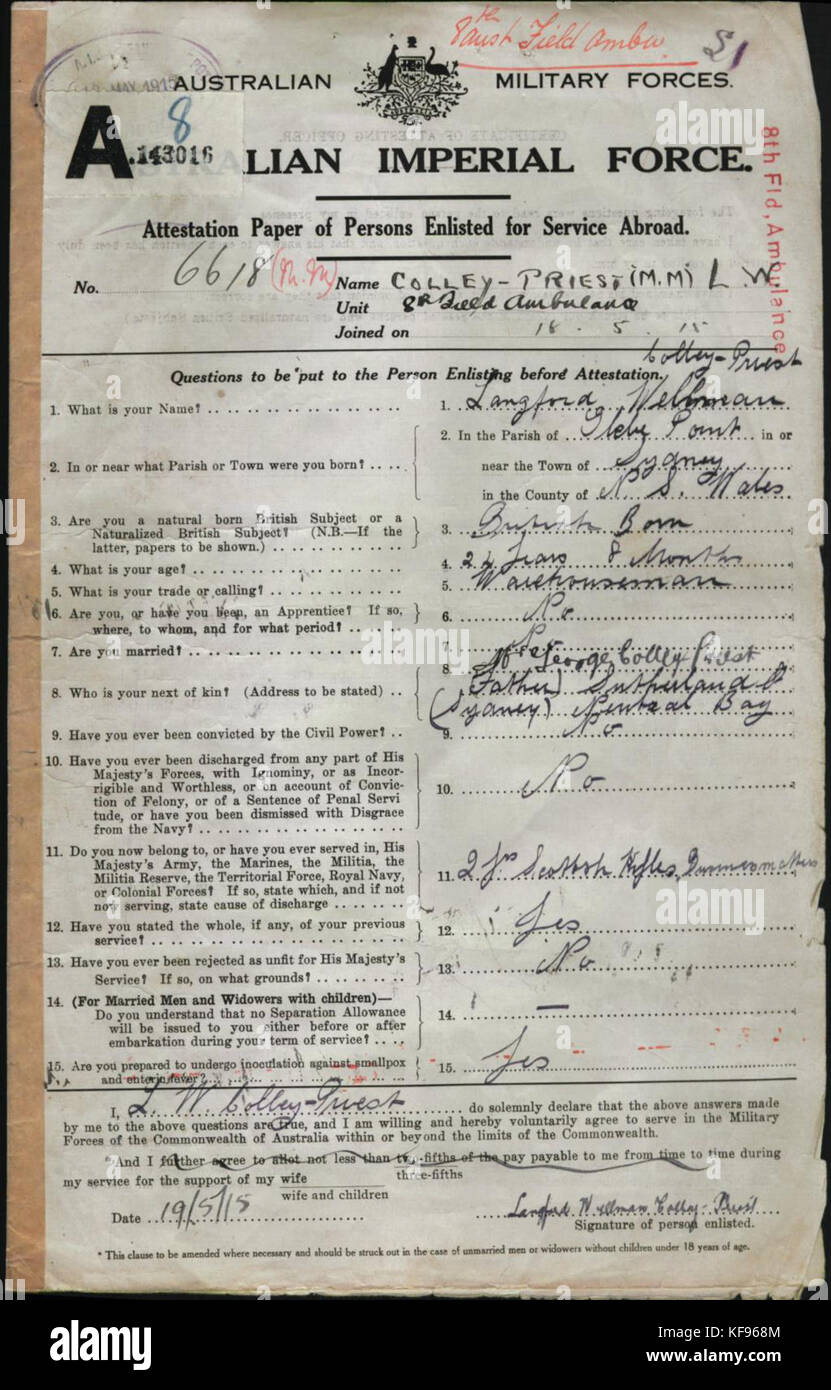 8th Aust Field Ambce
AUSTRALIAN MILITARY FORCES.
A 8
.143016
ALIAN IMPERIAL FORCE.
8th Fld, Ambulance
Attestation Paper of Persons Enlisted for Service Abroad.
No. 6618 (M.M) Name COLLEY-PRIEST (M.M) L W.
Unit 8th Field Ambulance
Joined on 18 . 5 . 15
Questions to be put to the Person Enlisting before Attestation.
Colley-Priest
1. What is your Name? 1. Langford Wellman
2. In or near what Parish or Town were you born? 2. In the Parish of Glebe Point in or
near the Town of Sydney
in the County of N. S. Wales
3. Are you a natural born British Subject or a
Naturalized British Subject? (N.B.—If the
latter, papers to be shown.) 3. British Born
4. What is your age? 4. 24 Years 8 Months
5. What is your trade or calling? 5. Warehouseman
6. Are you, or have you been, an Apprentice? If so,
where, to whom, and for what period? 6. No
7. Are you married? 7. No
8. Who is your next of kin? (Address to be stated) 8. George Colley Priest
(Father) Sutherland St
(Sydney) Neutral Bay
9. Have you ever been convicted by the Civil Power? 9. No
10. Have you ever been discharged from any part of His
Majesty's Forces, with Ignominy, or as Incor-
rigible and Worthless, or on account of Convic-
tion of Felony, or of a Sentence of Penal Servi
tude, or have you been dismissed with Disgrace
from the Navy? 10. No
11. Do you now belong to, or have you ever served in, His
Majesty's Army, the Marines, the Militia, the
Militia Reserve, the Territorial Force, Royal Navy,
or Colonial Forces? If so, state which, and if not
now serving, state cause of discharge 11. 2 yrs Scottish Rifles,
12. Have you stated the whole, if any, of your previous
service? 12. Yes
13. Have you ever been rejected as unfit for His Majesty's
Service? If so, on what grounds? 13. No
14. (For Married Men and Widowers with children)—
Do you understand that no Separation Allowance
will be issued to you either before or after
embarkation during your term of service? 14. —
15. Are you prepared to undergo inoculation against smallpox
and enteric fever? 15. Yes
I, L. W. Colley-Priest do solemnly declare that the above answers made
by me to the above questions are true, and I am willing and hereby voluntarily agree to serve in the Military
Forces of the Commonwealth of Australia within or beyond the limits of the Commonwealth.
*And I further agree to allot not less than two-fifths of the pay payable to me from time to time during
three-fifths
my service for the support of my wife
wife and children
Date 19/5/15 Langford Wellman Colley-Priest
Signature of person enlisted.
* This clause to be amended where necessary and should be struck out in the case of unmarried men or widowers without children under 18 years of age.
alamy
Image ID: KF968M
www.alamy.com